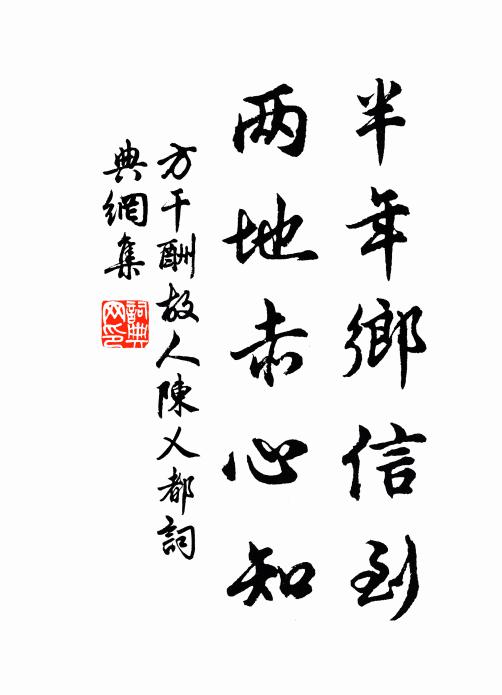 半年鄉信到
两地赤心知
方干酬故人陳乂都詞
典網集
詞典
网印